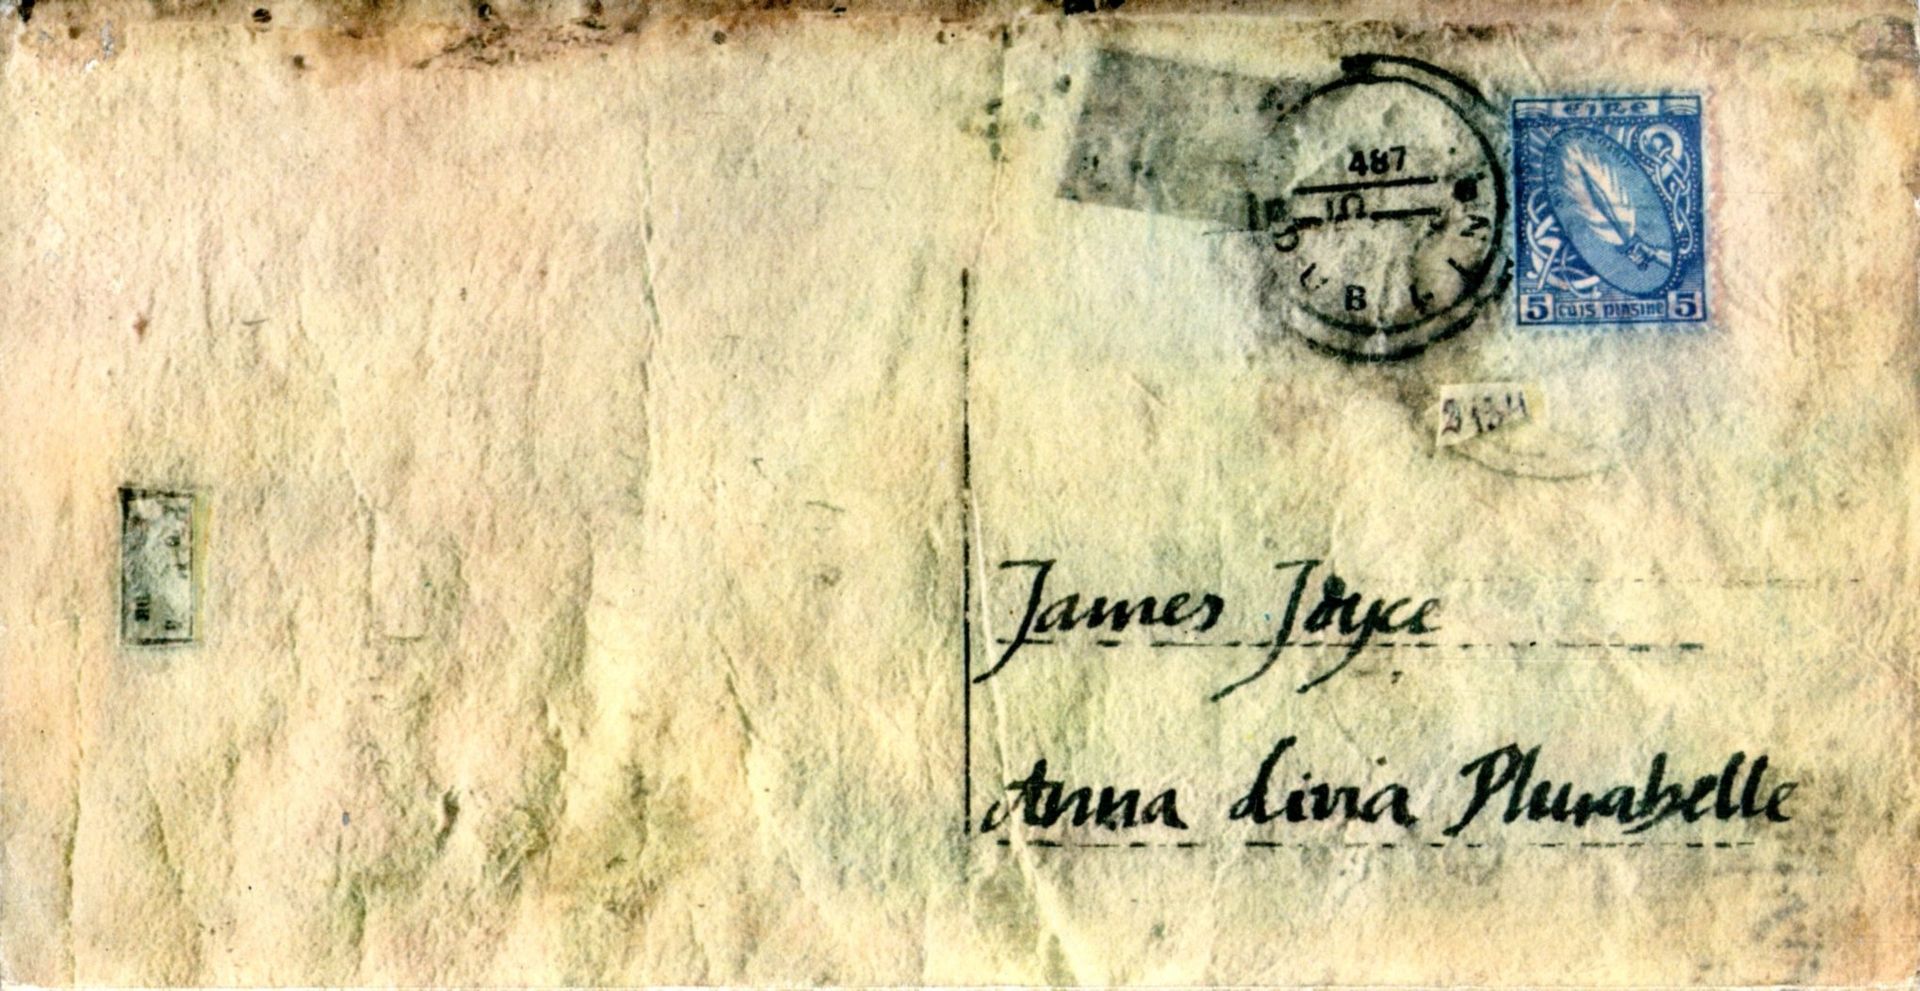 EIRE
487
DUBLIN
5 cúis pinsine 5
3134
James Joyce
Anna Livia Plurabelle